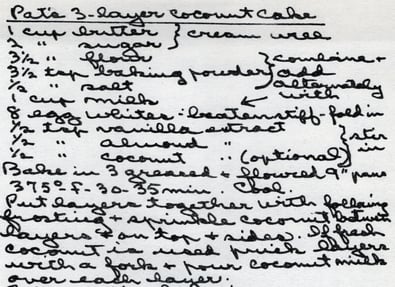 Pat's 3-layer coconut cake
1 cup butter } cream well
2 " sugar
3½ " flour } combine +
3½ tsp baking powder } add
½ " salt alternately
1 cup milk ← with
8 egg whites - beaten stiff - fold in
½ tsp vanilla extract } stir
½ " almond " in
½ " coconut " (optional)
Bake in 3 greased + floured 9" pans
375° F - 30-35 min. Cool.
Put layers together with following
frosting + sprinkle coconut between
layers + on top + sides. If fresh
coconut is used prick layers
with a fork + pour coconut milk
over each layer.